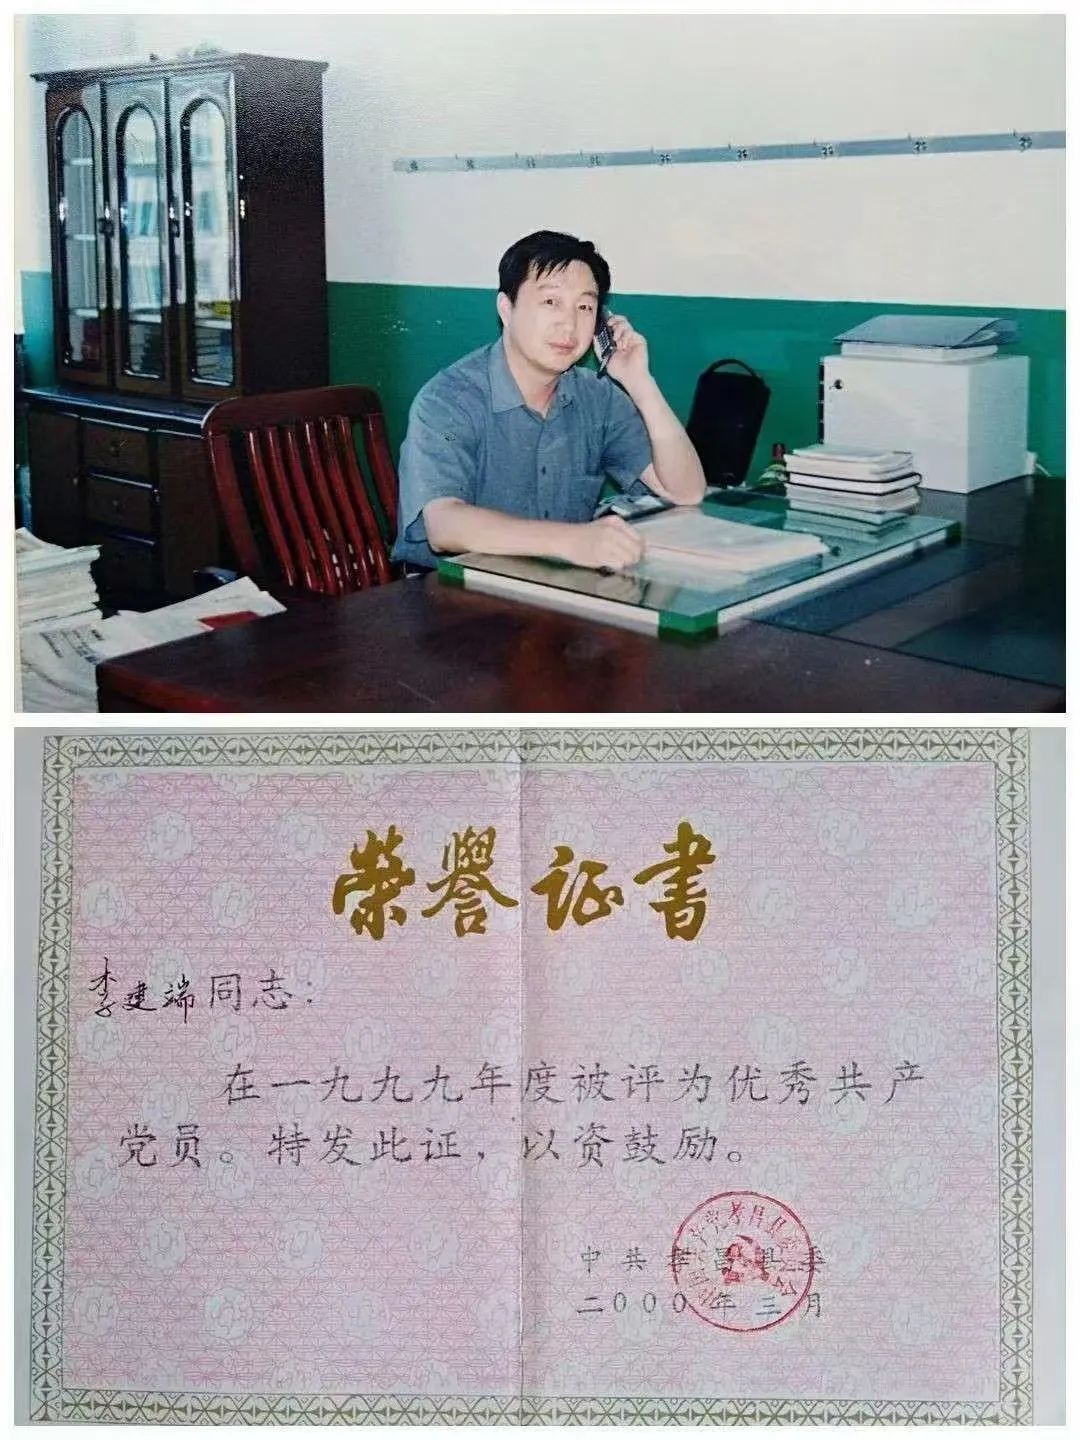 荣誉证书
李建端同志：
在一九九九年度被评为优秀共产
党员。特发此证，以资鼓励。
中共孝昌县委
二000年三月